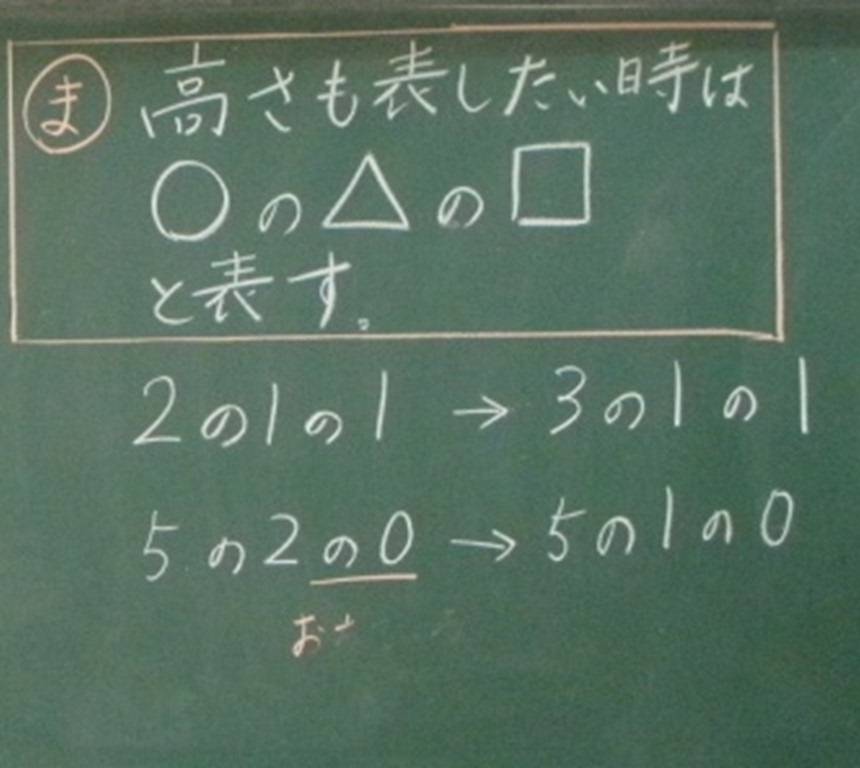 ま 高さも表したい時は
○の△の□
と表す。
2の1の1 → 3の1の1
5の2の0 → 5の1の0